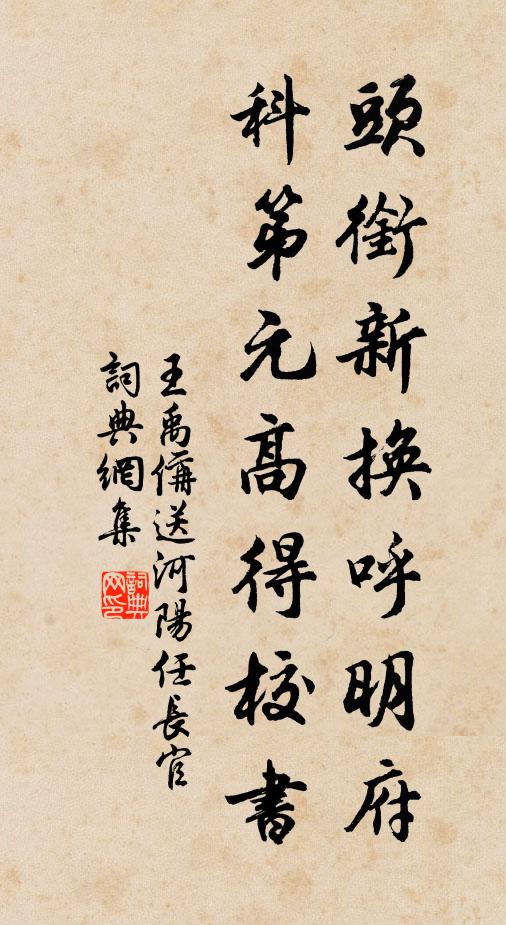 頭銜新換呼明府
科第元高得校書
王禹偁送河陽任長官
詞典網集
詞典
网印